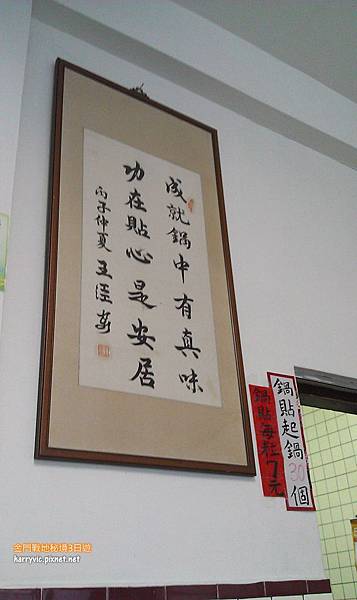 成就鍋中有真味
功在貼心是安居
丙子仲夏王
鍋貼起鍋30個
鍋貼每粒7元
金門戰地秘境3日遊
harryvic.pixnet.net